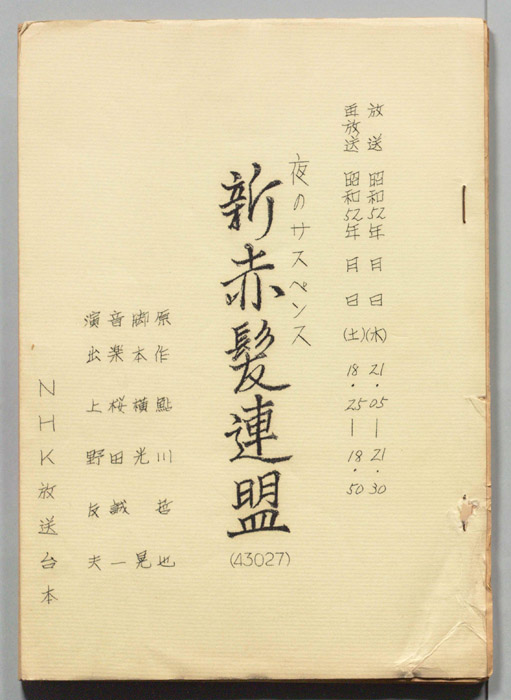 放送 昭和52年 月 日 (水) 21・05―21・30
再放送 昭和52年 月 日 (土) 18・25―18・50
夜のサスペンス
新赤髪連盟
(43027)
原作 鮎川哲也
脚本 横光晃
音楽 桜田誠一
演出 上野友夫
NHK放送台本